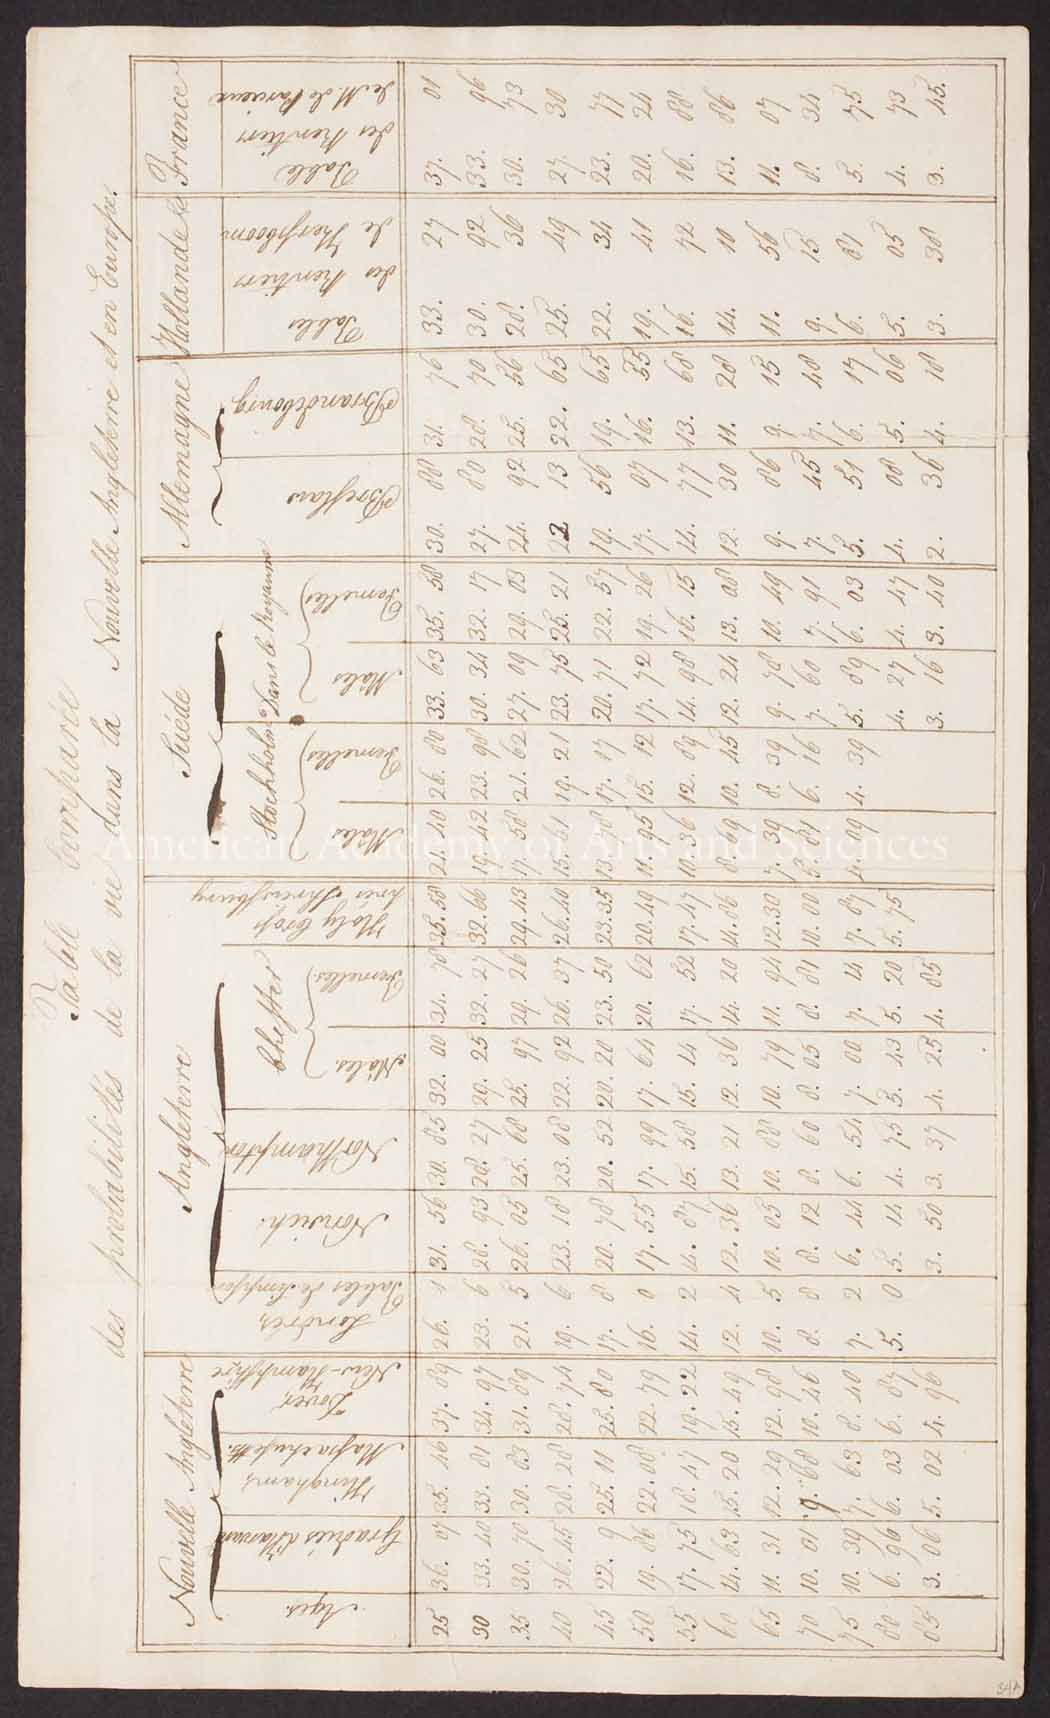 Table Comparée
des probabilités de la vie dans la Nouvelle Angleterre et en Europe.
Nouvelle Angleterre | Angleterre | Suéde | Allemagne | Hollande & France
Ages. | Gradués d'Harvard | Hingham, Massachusetts. | Dover, New-Hampshire | Londres, Tables de Simpson | Norwich. | Northampton | Chester Mâles. | Chester Femelles. | Holy Cross près Shrewsbury | Stockholm Mâles | Stockholm Femelles | Dans le Royaume Mâles | Dans le Royaume Femelles | Breslaw | Brandebourg | Tables des Rentiers de Kersseboom | Table des Rentiers de M. de Parcieux
25 | 36. 07 | 35. 46 | 37. 89 | 26. 1 | 31. 56 | 30. 85 | 32. 00 | 34. 78 | 35. 58 | 21. 40 | 26. 80 | 33. 63 | 35. 58 | 30. 88 | 31. 76 | 33. 27 | 37. 01
30 | 33. 40 | 33. 81 | 34. 97 | 23. 6 | 28. 93 | 28. 27 | 29. 25 | 32. 27 | 32. 66 | 19. 42 | 23. 98 | 30. 34 | 32. 17 | 27. 80 | 28. 70 | 30. 92 | 33. 96
35 | 30. 70 | 30. 83 | 31. 89 | 21. 5 | 26. 05 | 25. 68 | 25. 97 | 29. 26 | 29. 43 | 17. 58 | 21. 62 | 27. 09 | 29. 03 | 24. 92 | 25. 56 | 28. 36 | 30. 73
40 | 26. 45 | 28. 28 | 28. 74 | 19. 6 | 23. 18 | 23. 08 | 22. 92 | 26. 37 | 26. 40 | 15. 61 | 19. 21 | 23. 75 | 25. 21 | 22. 13 | 22. 65 | 25. 49 | 27. 30
45 | 22. 9 | 25. 11 | 25. 80 | 17. 8 | 20. 78 | 20. 52 | 20. 20 | 23. 50 | 23. 35 | 13. 78 | 17. 17 | 20. 71 | 22. 37 | 19. 56 | 19. 65 | 22. 34 | 23. 77
50 | 19. 86 | 22. 08 | 22. 79 | 16. 0 | 17. 55 | 17. 99 | 17. 64 | 20. 62 | 20. 49 | 11. 95 | 15. 12 | 17. 72 | 19. 26 | 17. 07 | 16. 55 | 19. 41 | 20. 24
55 | 17. 75 | 18. 47 | 19. 22 | 14. 2 | 14. 87 | 15. 58 | 15. 14 | 17. 52 | 17. 47 | 10. 36 | 12. 89 | 14. 98 | 16. 15 | 14. 77 | 13. 68 | 16. 72 | 16. 88
60 | 14. 63 | 15. 20 | 15. 49 | 12. 4 | 12. 36 | 13. 21 | 12. 36 | 14. 20 | 14. 86 | 8. 69 | 10. 45 | 12. 24 | 13. 08 | 12. 30 | 11. 28 | 14. 10 | 13. 86
65 | 11. 31 | 12. 29 | 12. 98 | 10. 5 | 10. 05 | 10. 88 | 10. 79 | 11. 94 | 12. 30 | 7. 39 | 8. 39 | 9. 78 | 10. 49 | 9. 86 | 9. 15 | 11. 56 | 11. 07
70 | 10. 01 | 9. 68 | 10. 46 | 8. 8 | 8. 12 | 8. 60 | 8. 05 | 8. 81 | 10. 00 | 5. 81 | 6. 16 | 7. 60 | 7. 91 | 7. 45 | 7. 48 | 9. 15 | 8. 34
75 | 10. 39 | 7. 63 | 8. 40 | 7. 2 | 6. 44 | 6. 54 | 7. 00 | 7. 14 | 7. 87 | 4. 09 | 4. 39 | 5. 89 | 6. 03 | 5. 51 | 6. 17 | 6. 81 | 5. 75
80 | 6. 96 | 6. 03 | 6. 87 | 5. 0 | 5. 14 | 4. 75 | 5. 43 | 5. 20 | 5. 75 | 4. 27 | 4. 47 | 4. 08 | 5. 06 | 5. 05 | 4. 73
85 | 3. 06 | 5. 02 | 4. 96 | 3. 50 | 3. 37 | 4. 25 | 4. 85 | 3. 16 | 3. 40 | 2. 36 | 4. 18 | 3. 38 | 3. 45.
American Academy of Arts and Sciences